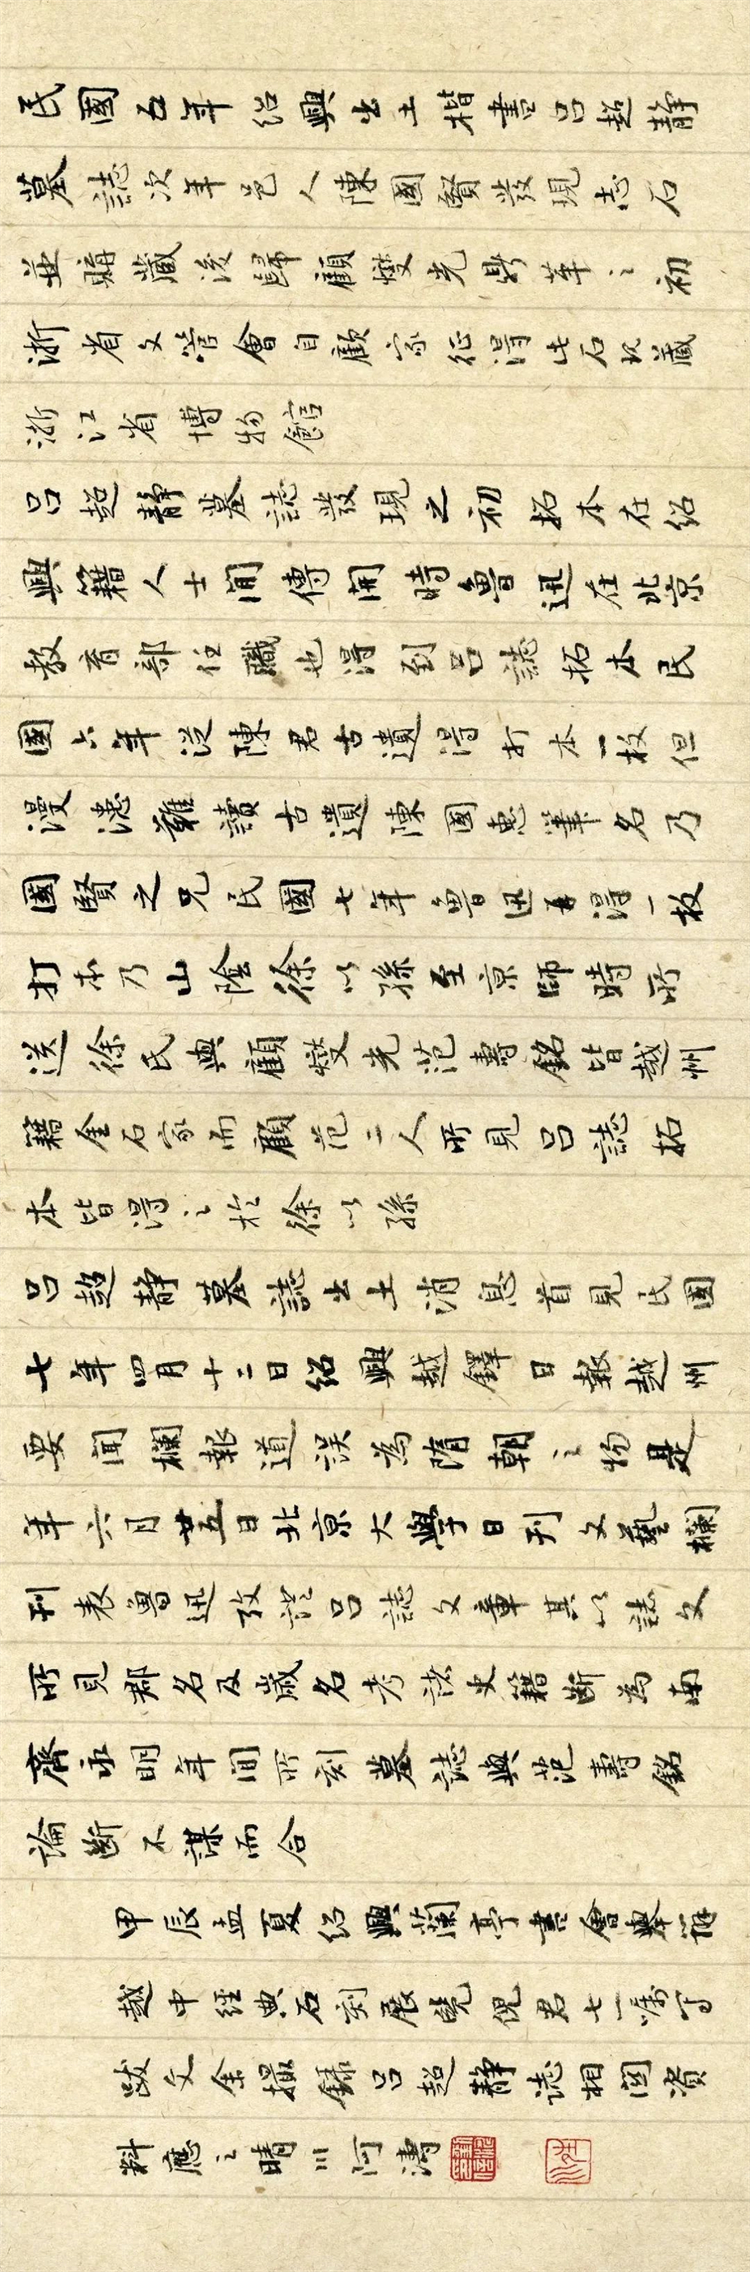 民國五年紹興出土楷書呂超靜
墓誌次年邑人陳國賢發現志石
並購藏後歸顧燮光鼎革之初
浙省文管會自顧家征得此石現藏
浙江省博物館
呂超靜墓誌發現之初拓本在紹
興籍人士間傳開時魯迅在北京
教育部任職也得到呂誌拓本民
國六年從陳君古遺得打本一枚但
漫漶難讀古遺陳國惠筆名乃
國賢之兄民國七年魯迅再得一枚
打本乃山陰徐以孫至京師時所
送徐氏與顧燮光范壽銘皆越州
籍金石家而顧范二人所見呂誌拓
本皆得之於徐以孫
呂超靜墓誌出土消息首見民國
七年四月十二日紹興越鐸日報越州
要聞欄報道誤為隋朝之物是
年六月廿五日北京大學日刊文藝欄
刊表魯迅攷證呂誌文章其以誌文
所見郡名及歲名考諸史籍斷為南
齊永明年間所刻墓誌與范壽銘
論斷不謀而合
甲辰孟夏紹興蘭亭書會舉辦
越中經典石刻展覽倪君七一囑寫
跋文余撮錄呂超靜誌相関資
料應之晴川何濤